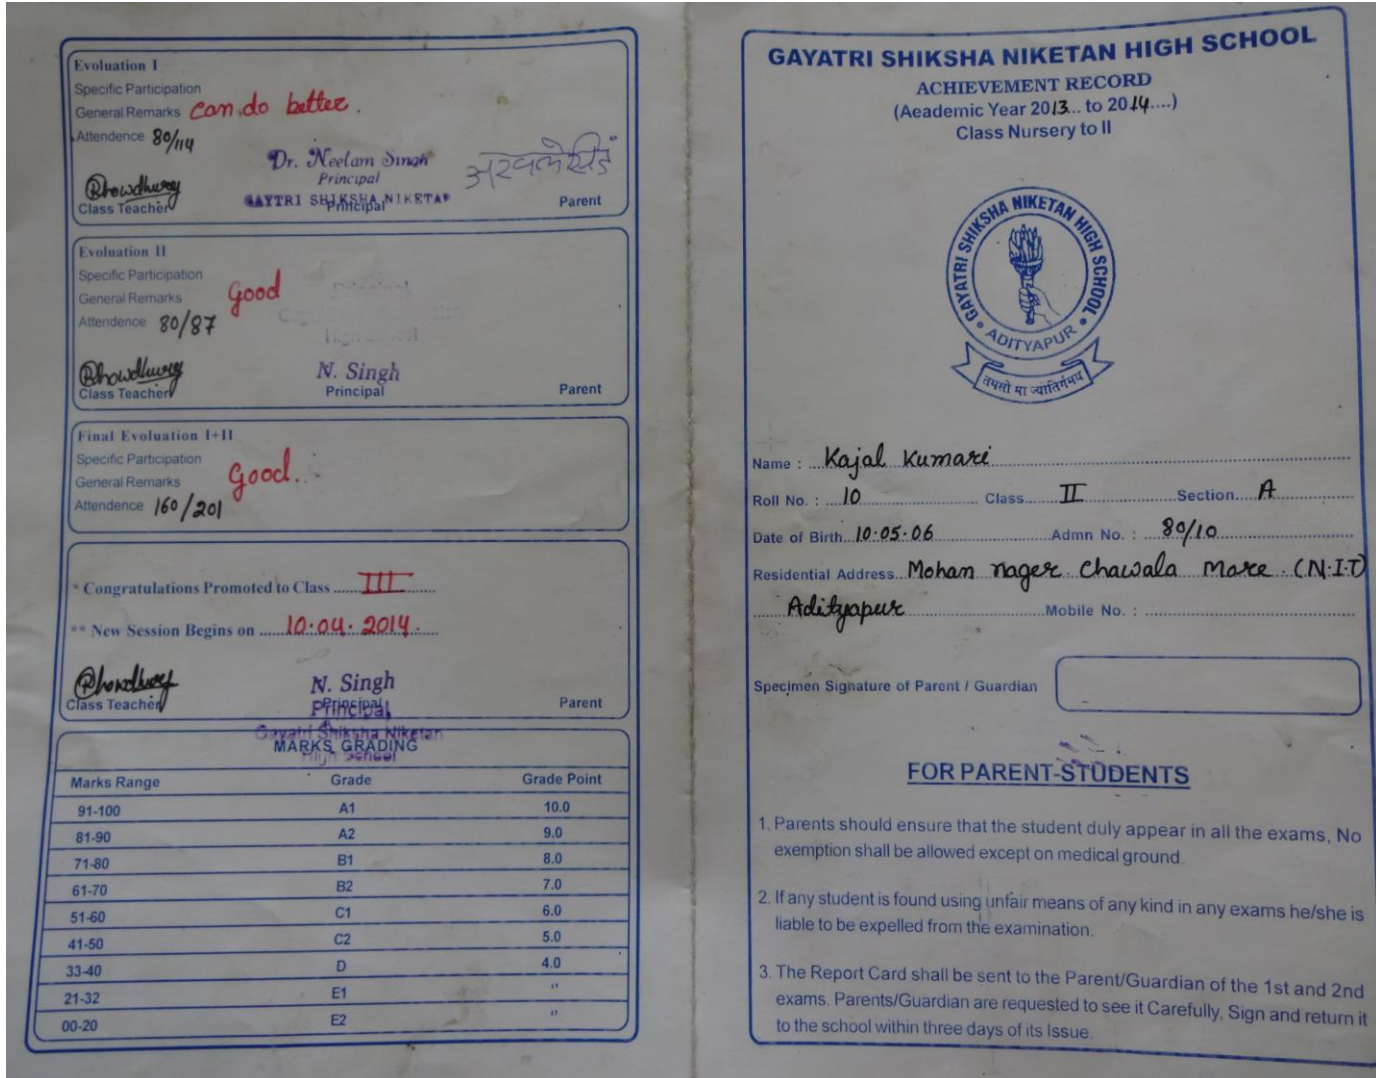 Evoluation I
Specific Participation
General Remarks can do better.
Attendence 80/114
Dr. Neelam Singh
Principal
GAYTRI SHIKSHA NIKETAN
Class Teacher Principal Parent
Evoluation II
Specific Participation
General Remarks Good
Attendence 80/87
Principal
High School
N. Singh
Class Teacher Principal Parent
Final Evoluation I+II
Specific Participation
General Remarks Good.
Attendence 160/201
* Congratulations Promoted to Class III
** New Session Begins on 10.04.2014.
N. Singh
Class Teacher Principal Parent
Principal
Gayatri Shiksha Niketan
High School
MARKS GRADING
Marks Range Grade Grade Point
91-100 A1 10.0
81-90 A2 9.0
71-80 B1 8.0
61-70 B2 7.0
51-60 C1 6.0
41-50 C2 5.0
33-40 D 4.0
21-32 E1 "
00-20 E2 "
GAYATRI SHIKSHA NIKETAN HIGH SCHOOL
ACHIEVEMENT RECORD
(Aeademic Year 2013... to 2014....)
Class Nursery to II
GAYATRI SHIKSHA NIKETAN HIGH SCHOOL
ADITYAPUR
तमसो मा ज्योतिर्गमय
Name : Kajal Kumari
Roll No. : 10 Class II Section A
Date of Birth 10.05.06 Admn No. : 80/10
Residential Address Mohan nager Chawala More. (N.I.T)
Adityapur Mobile No. :
Specimen Signature of Parent / Guardian
FOR PARENT-STUDENTS
1. Parents should ensure that the student duly appear in all the exams, No
exemption shall be allowed except on medical ground.
2. If any student is found using unfair means of any kind in any exams he/she is
liable to be expelled from the examination.
3. The Report Card shall be sent to the Parent/Guardian of the 1st and 2nd
exams. Parents/Guardian are requested to see it Carefully, Sign and return it
to the school within three days of its Issue.